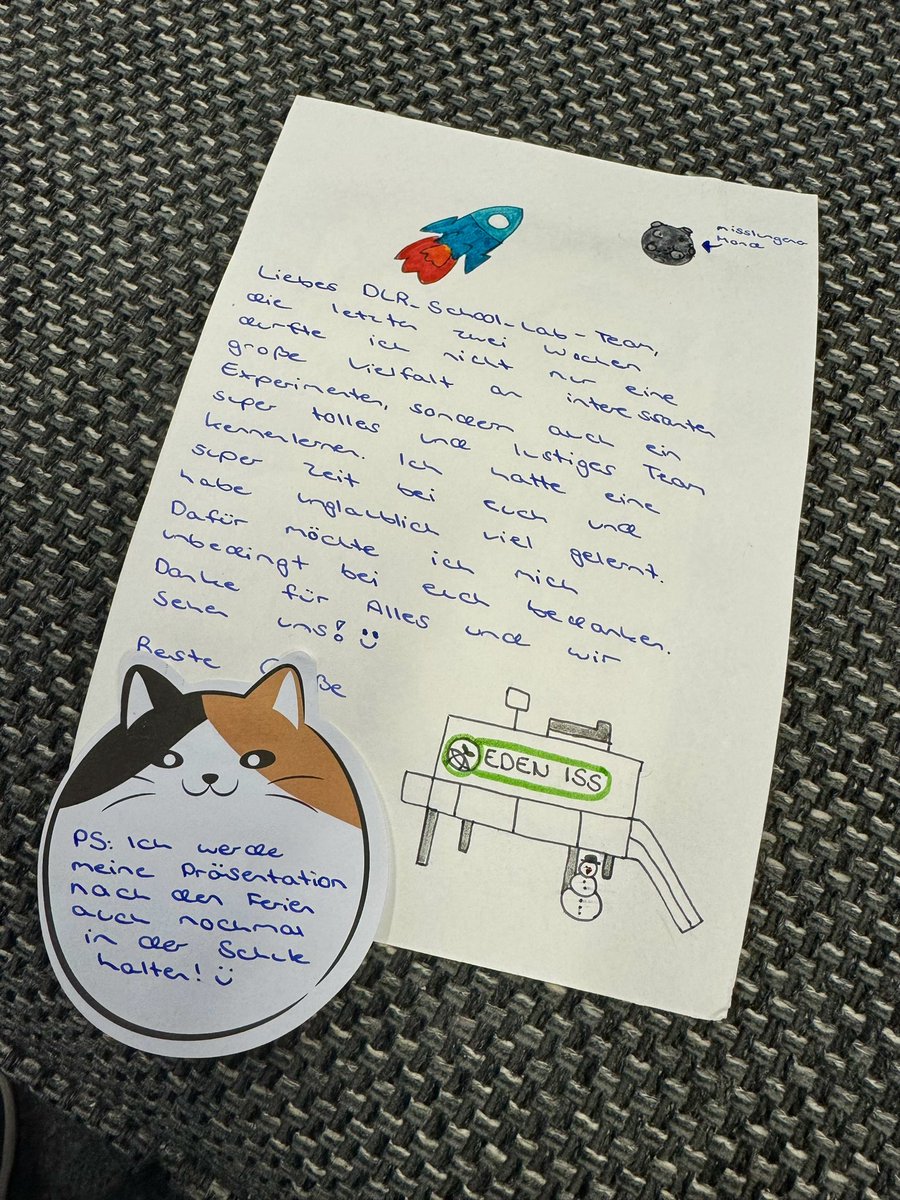 misslungener
Mond
Liebes DLR-School-Lab-Team,
die letzten zwei Wochen
durfte ich nicht nur eine
große Vielfalt an interessanten
Experimenten, sondern auch ein
super tolles und lustiges Team
kennenlernen. Ich hatte eine
super Zeit bei euch und
habe unglaublich viel gelernt.
Dafür möchte ich mich
unbedingt bei euch bedanken.
Danke für Alles und wir
sehen uns! :)
Beste
EDEN ISS
PS: Ich werde
meine Präsentation
nach den Ferien
auch nochmal
in der Schule
halten! :)